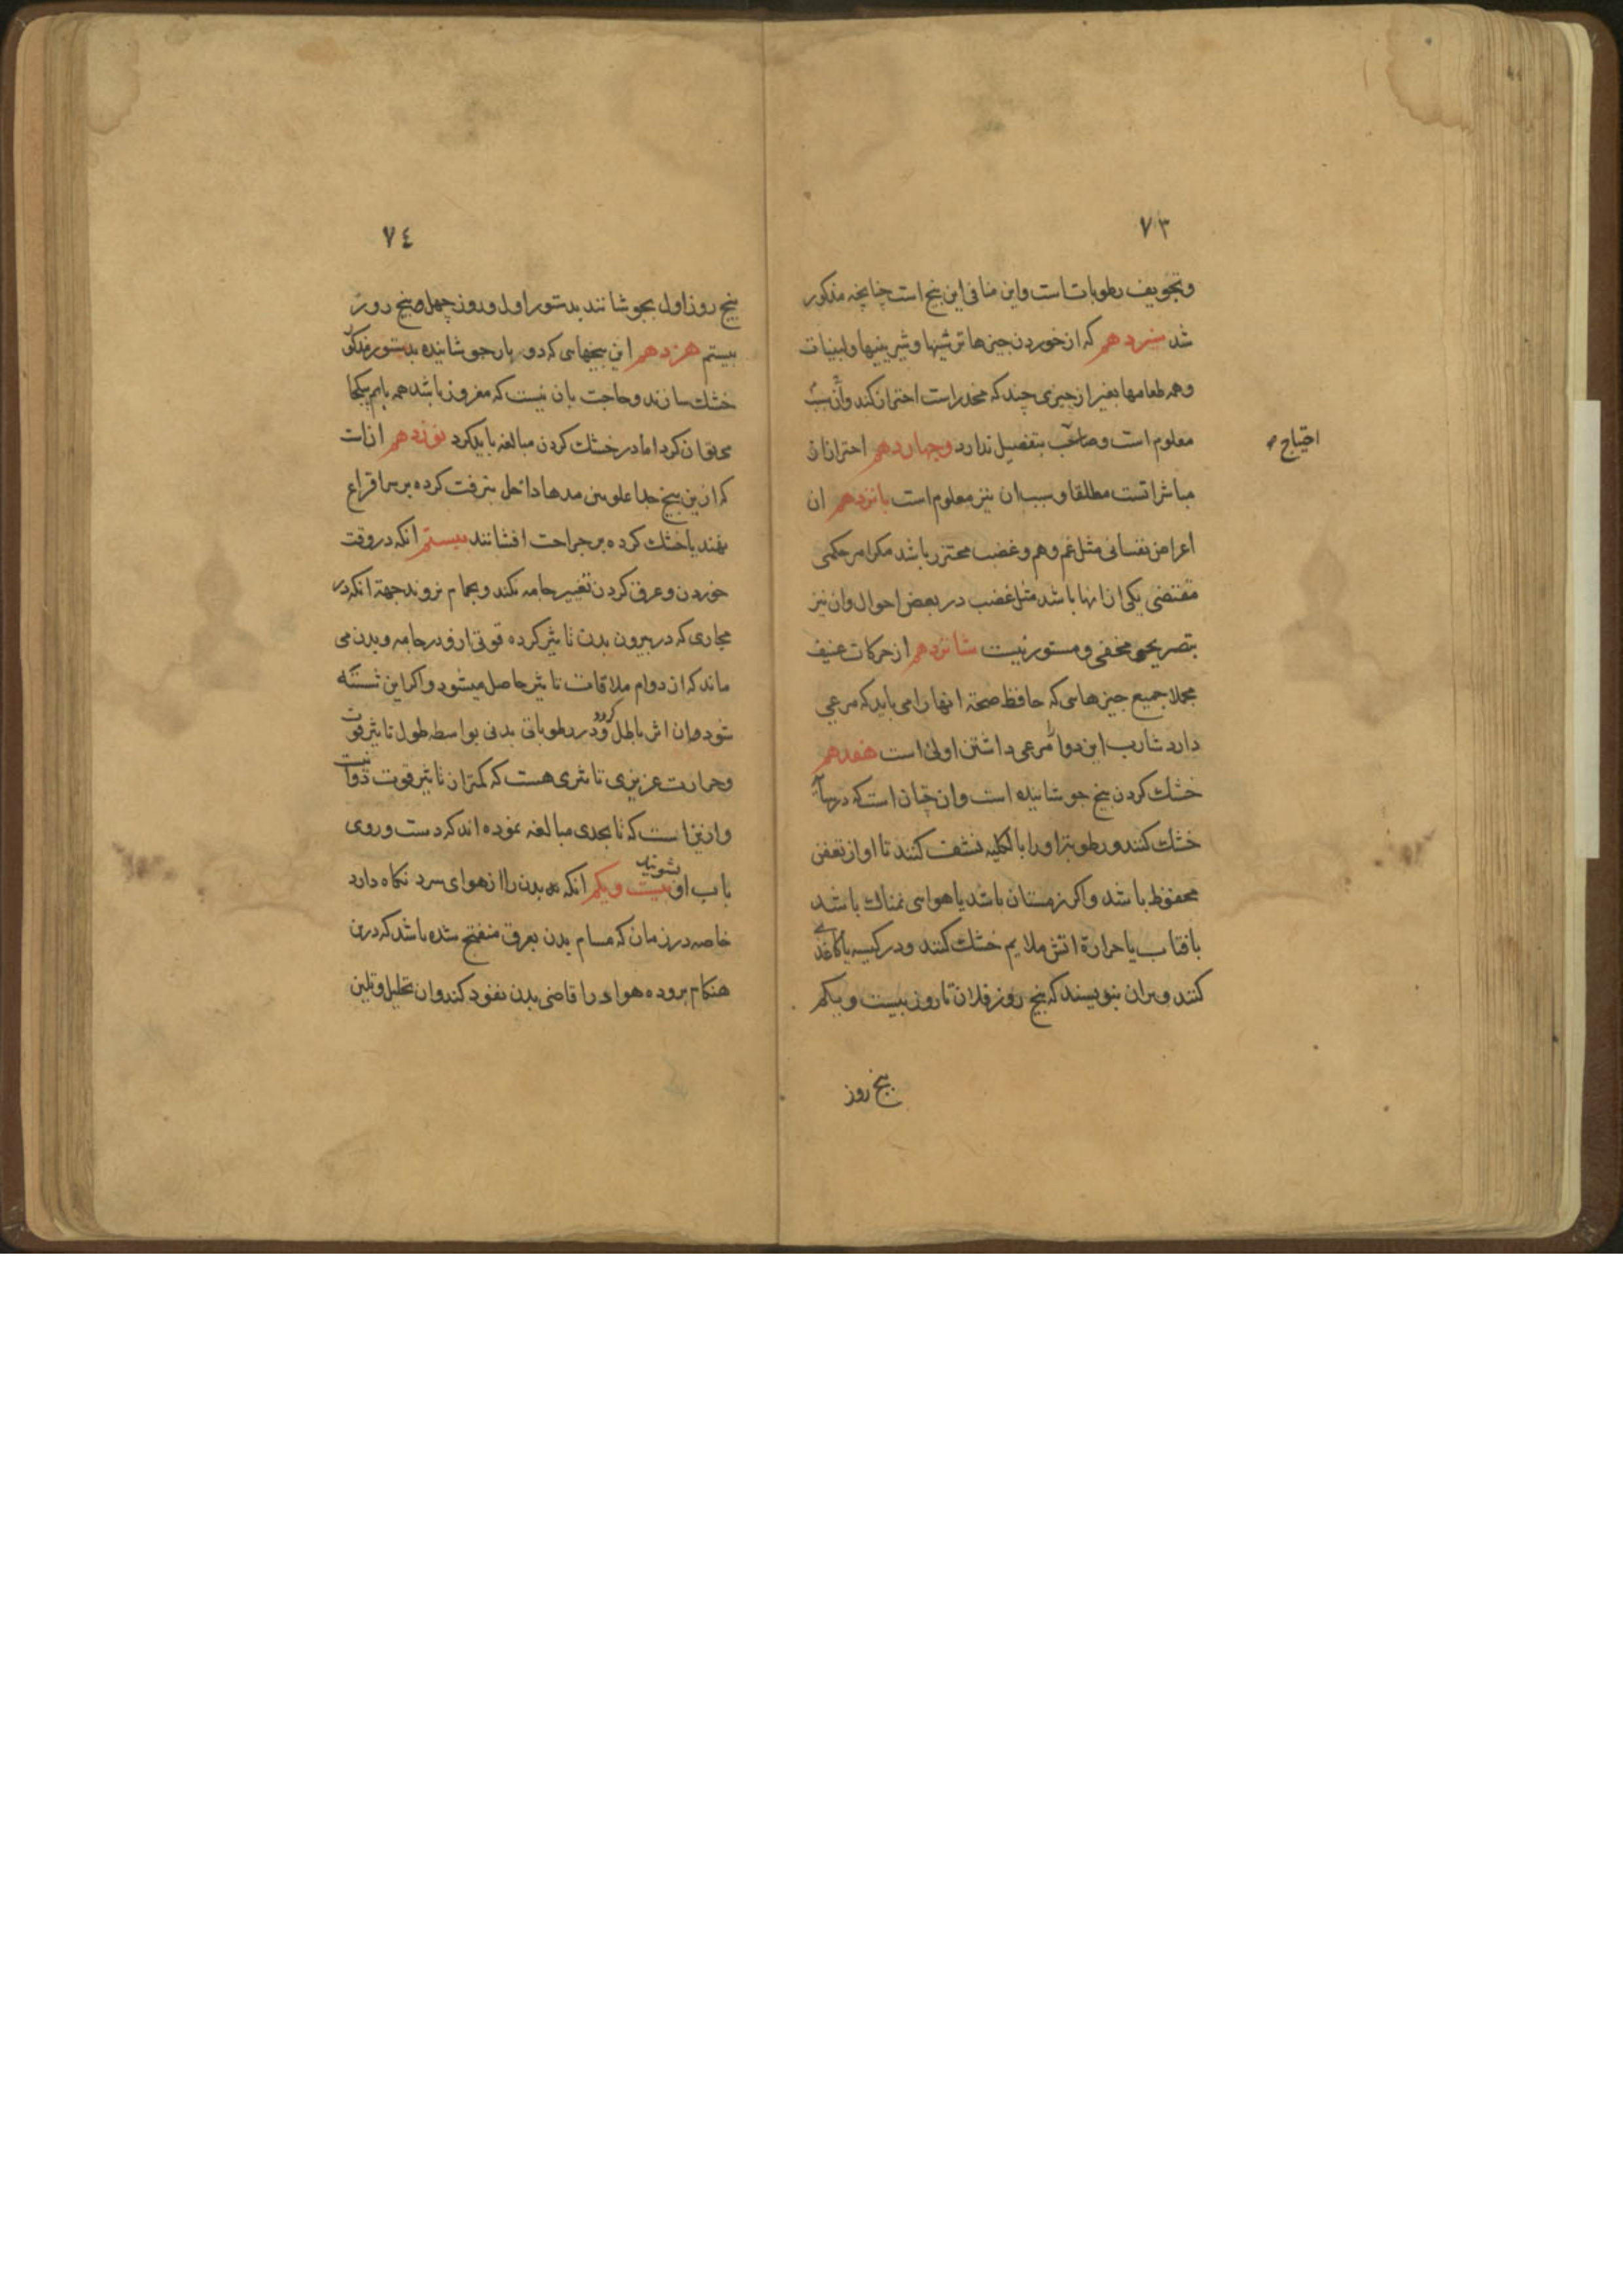 ٧٣
وتجویف رطوباتست واین منافی این بیخ است چنانچه مذکور
شد سیزدهم که از خوردن چیزها ترشیها وشیرینیها ولبنیات
وهمه طعامها بغیر از چیزی چند که مخدر است احتراز کند وآن سبب
معلوم است وصاحب بتفصیل ندارد وچهاردهم احتراز از
احتیاج
مباشراتست مطلقا وسبب ان نیز معلوم است پانزدهم ان
اعراض نفسانی مثل غم وهم وغضب محترز باشد مکر امر حکمی
مقتضی یکی از انها باشد مثل غضب در بعض احوال وان نیز
بتصریحی مخفی ومستور نیست شانزدهم از حرکات عنیف
مجملا جمیع چیزهایی که حافظ صحة انها را می باید که مرعی
دارد شارب این دوا مرعی داشتن اولی است هفدهم
خشك کردن بیخ جوشانیده است وان چنان است که در
خشك کنند ورطوبتر اورا بالکلیه نشف کنند تا او از تعفن
محفوظ باشد واکر زمستان باشد یا هوای نمناك باشد
بافتاب یا حرارة اتش ملایم خشك کنند ودر کیسه یا کاغذی
کنند وبران بنویسند که بیخ روز فلان تا روز بیست ویکم
بیخ روز
٧٤
بیخ روز اول بجوشانند بدستور اول وروز چهل بیخ روز
بیستم هزدهم این بیخهایی که دو بار جوشانیده بدستور مذکور
خشك سازند وحاجت بان نیست که مفروز باشد همه باهم یکجا
می توان کرد اما در خشك کردن مبالغه باید کرد نوزدهم از است
که ازین بیخ جدا علوس مدها داخل بزفت کرده بر سر اقراع
نهند یا خشك کرده بر جراحت افشانند بیستم انکه در وقت
خوردن وعرق کردن تغییر جامه نکند وبحمام نروند جهة انکه در
مجاری که در بیرون بدن تاثیر کرده قوتی ازو در جامه وبدن می
ماند که از دوام ملاقات تاثیر حاصل میشود واکر این شسته
شود وان اثر باطل کردد ودر رطوباتی بدنی بواسطه طول تاثیر قوت
وحرارت عزیزی تاثری هست که کمتر از تاثیر قوت دوا نیست
وازینراست که تا بحدی مبالغه نموده اند که دست وروی
باب او نشویند بیست ویکم انکه بدن را از هوای سرد نکاه دارد
خاصه درزمان که مسام بدن بعرق منفتح شده باشد که درین
هنکام بروده هوا در اقاضی بدن نفوذ کند وان تحلیل وتلین